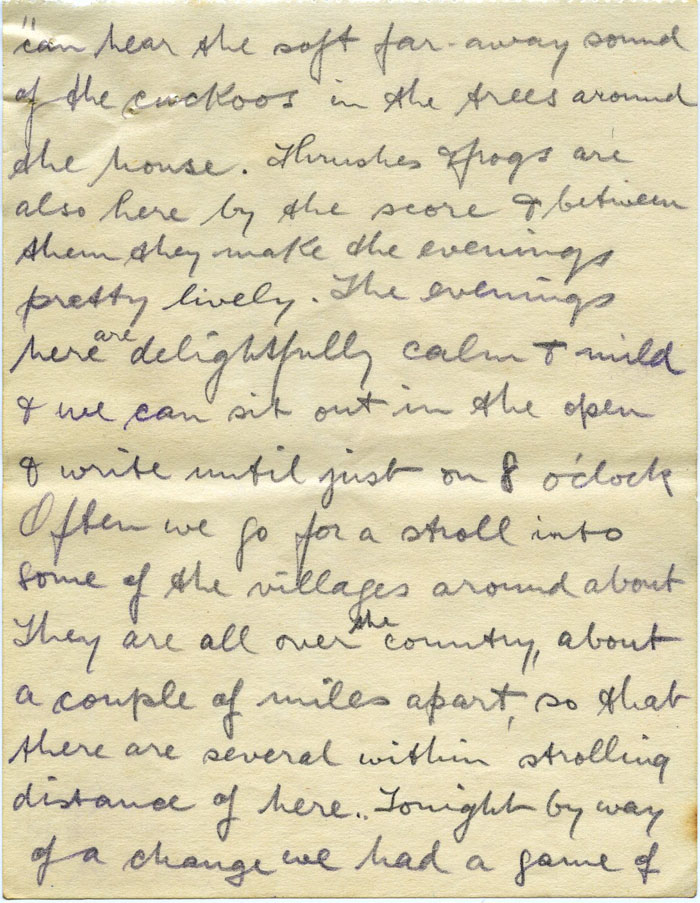 "can hear the soft far-away sound
of the cuckoos in the trees around
the house. Thrushes & frogs are
also here by the score & between
them they make the evenings
pretty lively. The evenings
here are delightfully calm & mild
& we can sit out in the open
& write until just on 8 o'clock
Often we go for a stroll into
some of the villages around about
They are all over the country, about
a couple of miles apart, so that
there are several within strolling
distance of here. Tonight by way
of a change we had a game of